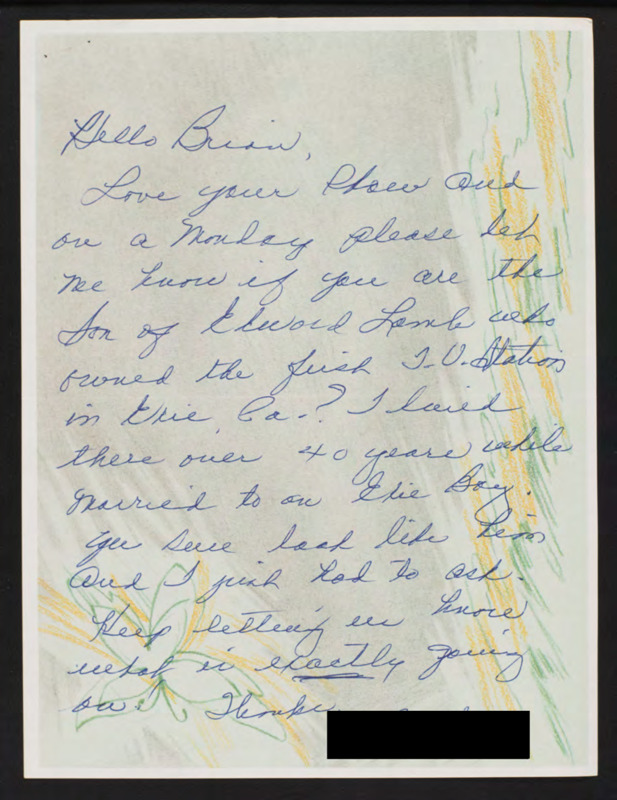 Hello Brian,
Love your Show and
on a Monday please let
me know if you are the
Son of Edward Lamb who
owned the first T.V. Station
in Erie, Pa.? I lived
there over 40 years while
married to an Erie Boy.
You sure look like him
and I just had to ask.
Keep letting us know
what is exactly going
on! Thanks